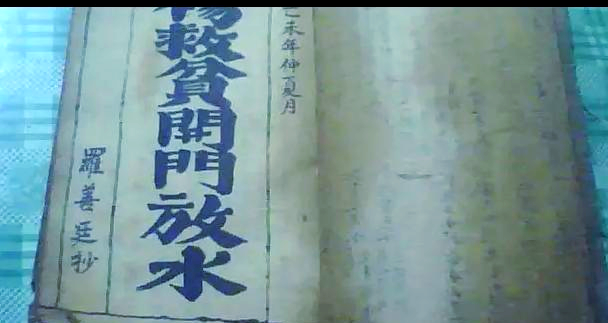 己未年仲夏月
楊救貧開門放水
羅善廷抄